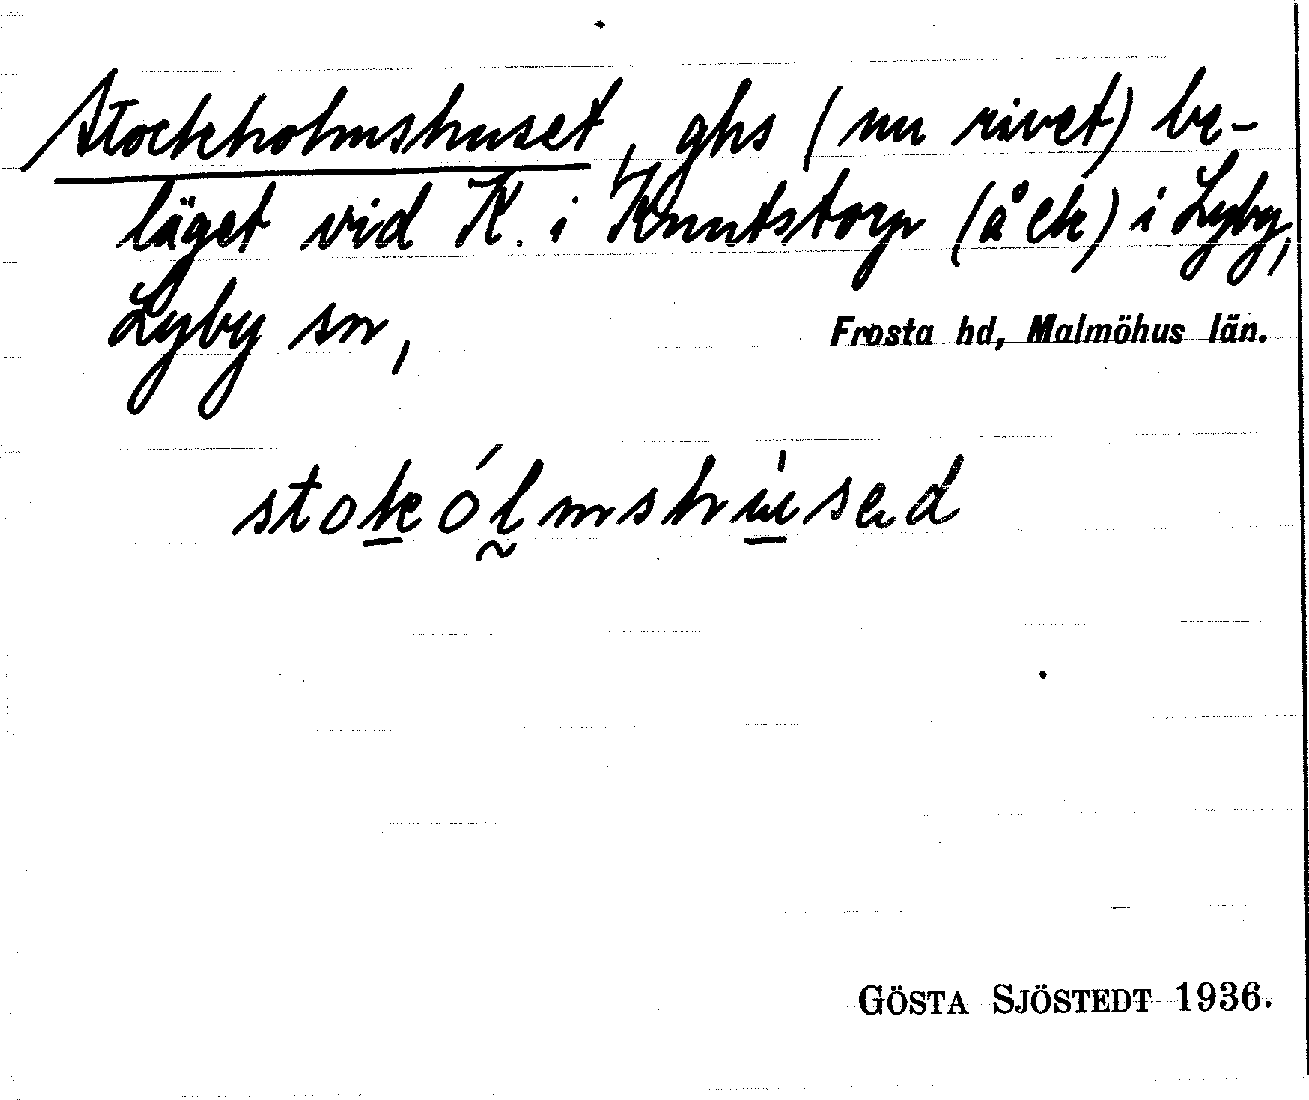 Stockholmshuset, ghs (nu rivet) be-
läget vid K. i Knutstorp (å ek) i Lyby,
Lyby sn,
Frosta hd, Malmöhus län.
stokólmshùsed
GÖSTA SJÖSTEDT 1936.